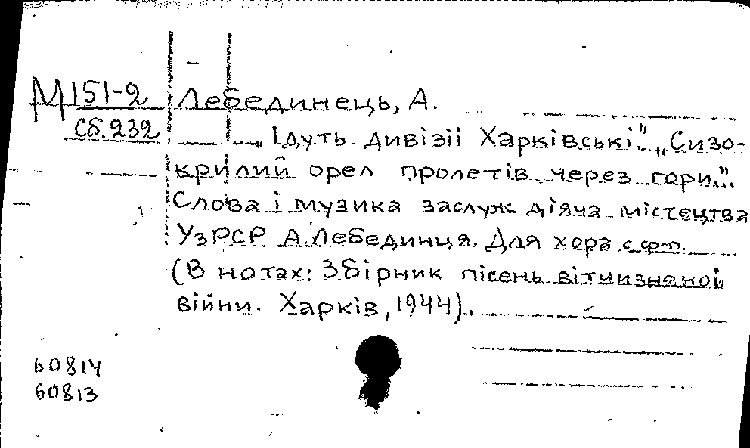 М 151-2
Сб.232
Лебединець, А.
„Ідуть дивізії Харківські". „Сизо-
крилий орел пролетів через гори".
Слова і музика заслуж. діяча мистецтва
УзРСР А.Лебединця. Для хора с ф-п.
(В нотах: Збірник пісень вітчизняної
війни. Харків, 1944).
60814
60813